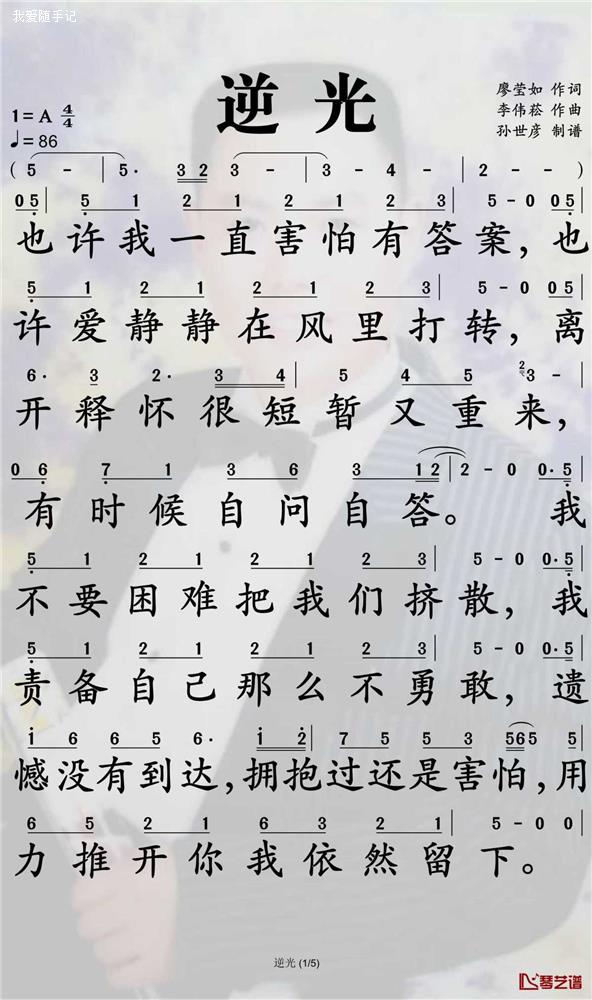 我爱随手记
逆光
廖莹如 作词
李伟菘 作曲
孙世彦 制谱
1=A 4/4
♩=86
( 5 - | 5· 3 2 3 - | 3 - 4 - | 2 - - )
0 5 | 5 1 2 1 2 1 2 3 | 5 - 0 0 5 |
也许我一直害怕有答案,也
5 1 2 1 2 1 2 3 | 5 - 0 0 5 |
许爱静静在风里打转,离
6· 3 2· 3 4 | 5 4 5 2 3 - |
开释怀很短暂又重来,
0 6 | 7 1 3 6 3 1 2 | 2 - 0 0· 5 |
有时候自问自答。 我
5 1 2 1 2 1 2 3 | 5 - 0 0· 5 |
不要困难把我们挤散,我
5 1 2 1 2 1 2 3 | 5 - 0 0· 5 |
责备自己那么不勇敢,遗
i 6 6 5 6· i 2 | 7 5 5 3 565 5 |
憾没有到达,拥抱过还是害怕,用
6 5 2 1 6 3 2 1 | 5 - 0 0 |
力推开你我依然留下。
逆光 (1/5)
琴艺谱